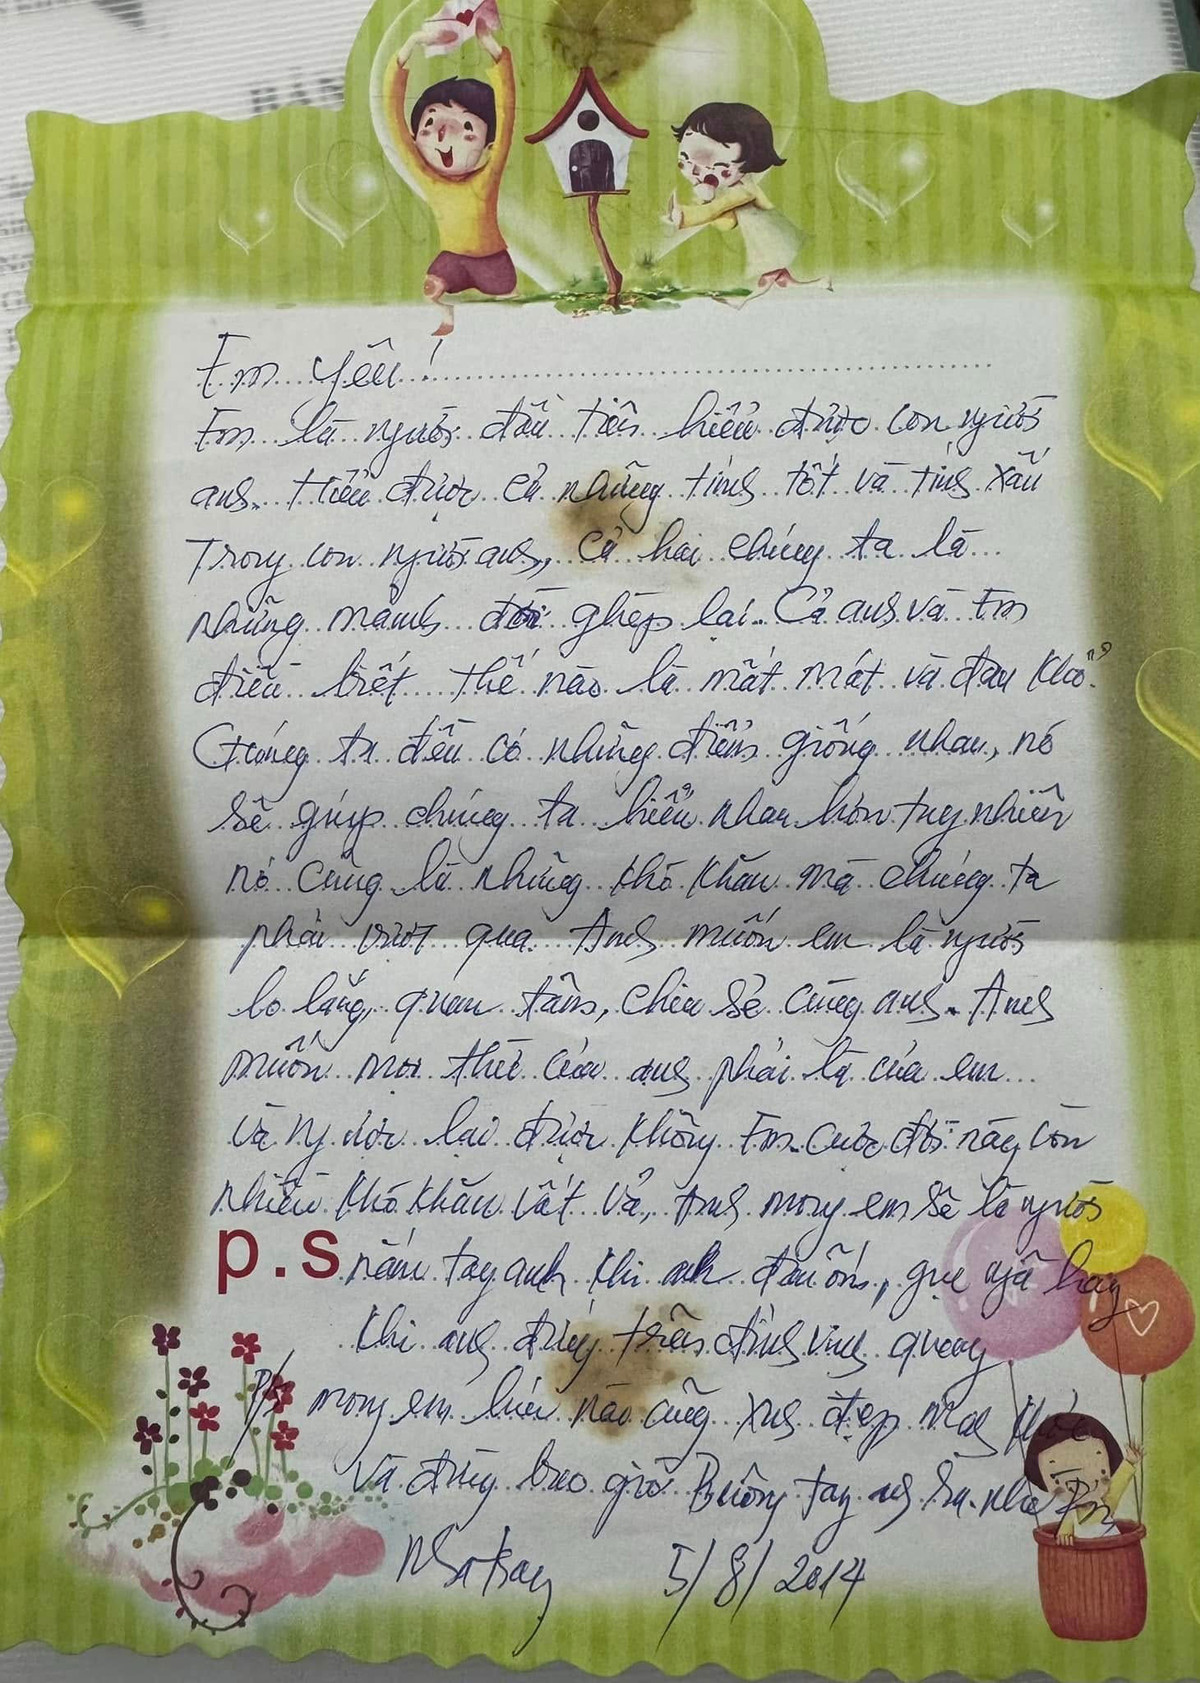 BẢN
Em yêu!
Em là người đầu tiên hiểu được con người
anh. Hiểu được cả những tính tốt và tính xấu
Trong con người anh, Cả hai chúng ta là
những mảnh đời ghép lại. Cả anh và Em
điều biết thế nào là mất mát và đau khổ.
Chúng ta đều có những điểm giống nhau, nó
sẽ giúp chúng ta hiểu nhau hơn tuy nhiên
nó cũng là những khó khăn mà chúng ta
phải vượt qua. Anh muốn em là người
lo lắng, quan tâm, chia sẻ cùng anh. Anh
muốn mọi thứ của anh phải là của em
và ngược lại được không Em. Cuộc đời này còn
nhiều khó khăn vất vả, Anh mong em sẽ là người
p.s nắm tay anh khi anh đau ốm, gục ngã hay
khi anh đứng trên đỉnh vinh quang
P/s mong em lúc nào cũng xinh đẹp mạnh khỏe
và đừng bao giờ Buông tay anh ra nhé Em
Nha trang 5/8/2014